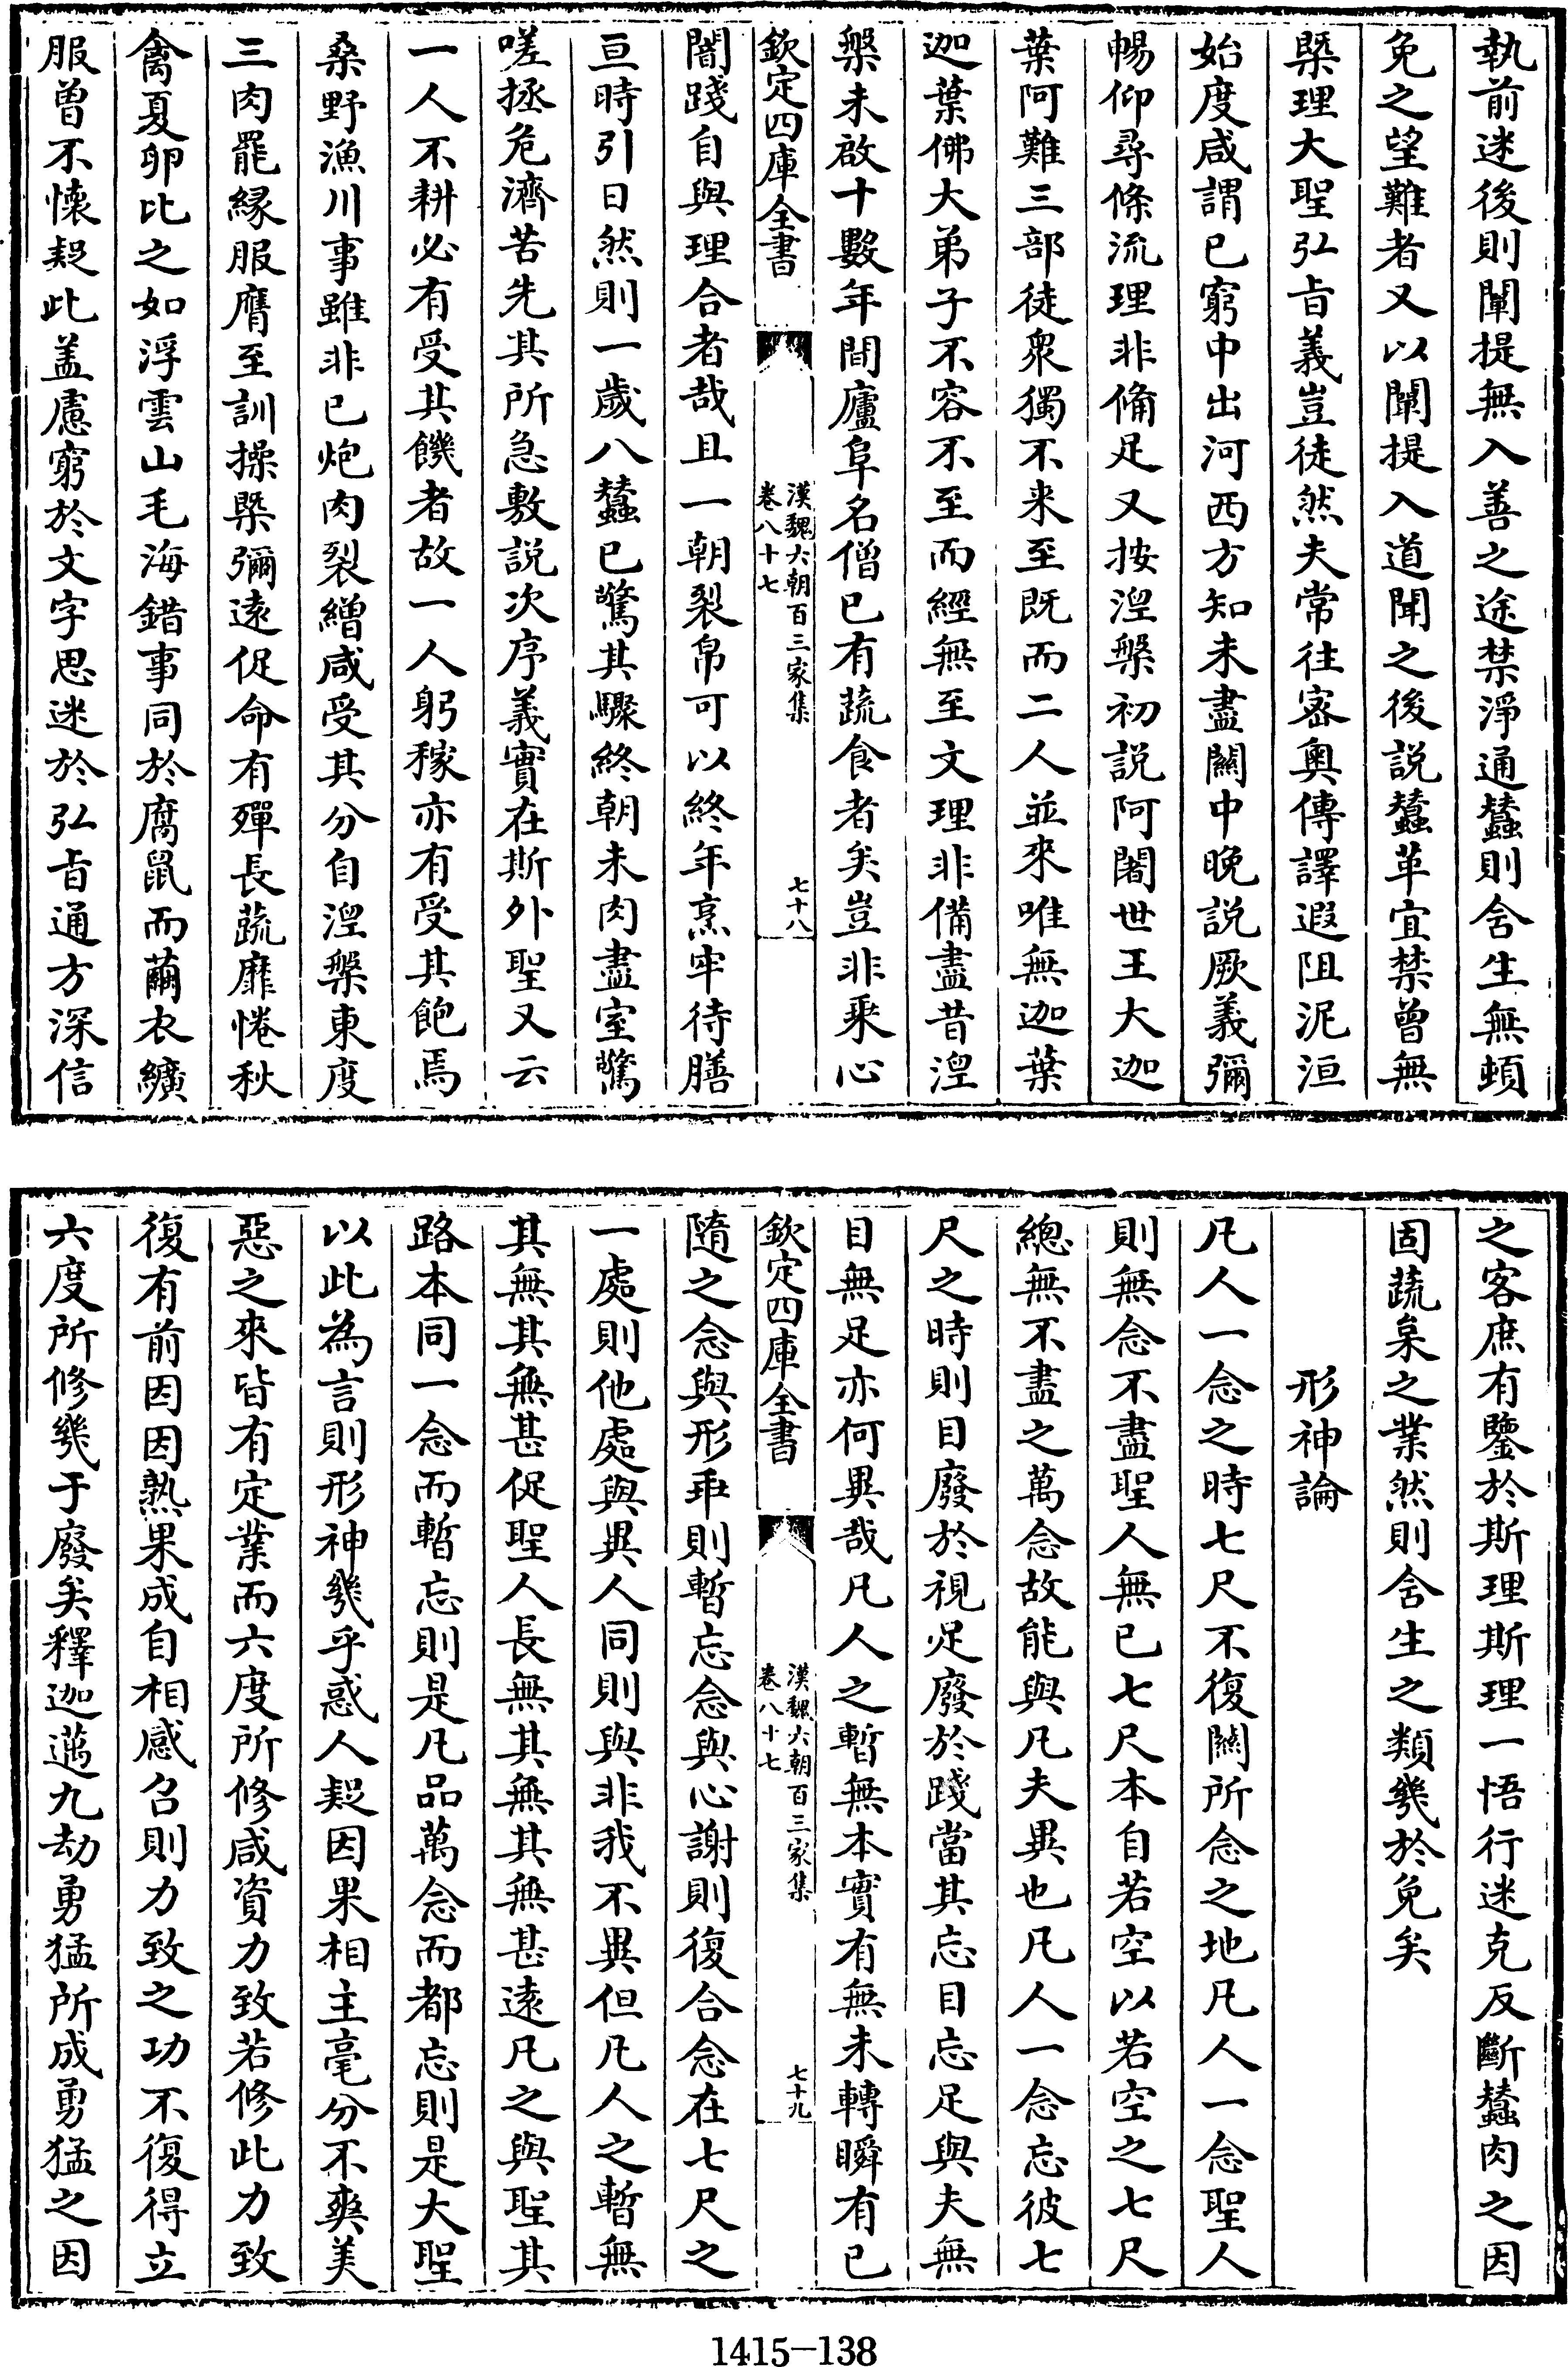 執前迷後則闡提無入善之途禁淨通蠶則含生無頓
免之望難者又以闡提入道聞之後説蠶革宜禁曾無
槩理大聖弘旨義豈徒然夫常住密奧傳譯遐阻泥洹
始度咸謂已窮中出河西方知未盡闗中晚説厥義彌
暢仰尋條流理非備足又按湼槃初説阿闍世王大迦
葉阿難三部徒衆獨不来至既而二人並來唯無迦葉
迦葉佛大弟子不容不至而經無至文理非備盡昔湼
槃未啟十數年間廬阜名僧已有蔬食者矣豈非乗心
欽定四庫全書
漢魏六朝百三家集
卷八十七
七十八
闇踐自與理合者哉且一朝裂帛可以終年烹牢待膳
亘時引日然則一歲八蠶已驚其驟終朝未肉盡室驚
嗟拯危濟苦先其所急敷説次序義實在斯外聖又云
一人不耕必有受其饑者故一人躬稼亦有受其飽焉
桑野漁川事雖非已炮肉裂繒咸受其分自湼槃東度
三肉罷縁服膺至訓操槩彌遠促命有殫長蔬靡惓秋
禽夏卵比之如浮雲山毛海錯事同於腐鼠而繭衣纊
服曾不懷疑此盖慮窮於文字思迷於弘旨通方深信
之客庶有鑒於斯理斯理一悟行迷克反斷蠶肉之因
固蔬枲之業然則含生之類㡬於免矣
形神論
凡人一念之時七尺不復闗所念之地凡人一念聖人
則無念不盡聖人無已七尺本自若空以若空之七尺
總無不盡之萬念故能與凡夫異也凡人一念忘彼七
尺之時則目廢於視足廢於踐當其忘目忘足與夫無
目無足亦何異哉凡人之暫無本實有無未轉瞬有已
欽定四庫全書
漢魏六朝百三家集
卷八十七
七十九
隨之念與形乖則暫忘念與心謝則復合念在七尺之
一處則他處與異人同則與非我不異但凡人之暫無
其無其無甚促聖人長無其無其無甚遠凡之與聖其
路本同一念而暫忘則是凡品萬念而都忘則是大聖
以此為言則形神㡬乎惑人疑因果相主毫分不爽美
惡之來皆有定業而六度所修咸資力致若修此力致
復有前因因熟果成自相感召則力致之功不復得立
六度所修㡬于廢矣釋迦邁九劫勇猛所成勇猛之因
1415-138